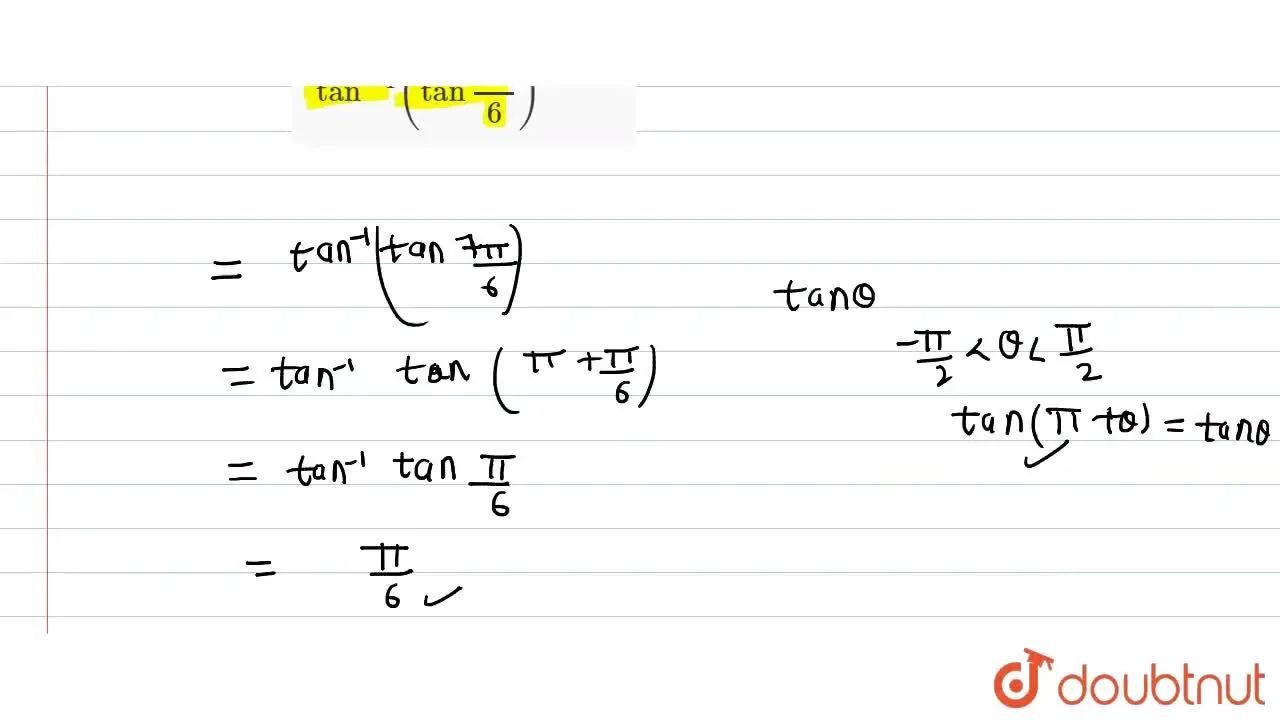 tan⁻¹(tan —/6)
= tan⁻¹(tan 7π/6)
= tan⁻¹ tan (π + π/6)
= tan⁻¹ tan π/6
= π/6 ✓
tanθ
-π/2 < θ < π/2
tan(π + θ) = tanθ
✓
doubtnut